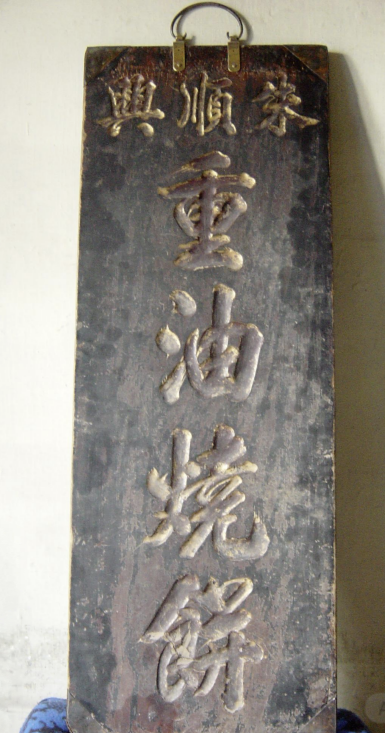 朱順興
重油燒餅